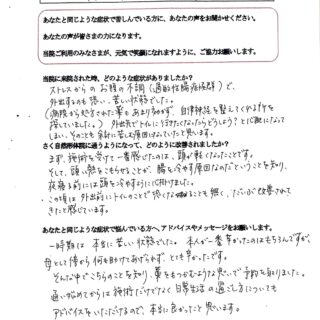 あなたと同じような症状で苦しんでいる方に、あなたの声をお聞かせください。
あなたの声が皆さまの力になります。
当院ご利用のみなさまが、元気で笑顔になれますように、ご協力お願いします。
当院に来院された時、どのような症状がありましたか？
ストレスからの お腹の不調（過敏性腸症候群）で、
外出するのも恐い、苦しい状態でした。
（病院から処方された薬も あまり効かず、自律神経を整えてくれる所を
探していました。）外出先でトイレに行きたくなったらどうしよう？と心配になって
しまい、そのことも余計に苦しむ原因になっていたと思います。
さく自然形体院に通うようになって、どのように改善されましたか？
まず、施術を受けて一番感じたのは、頭が軽くなったことです。
そして、頭に熱をこもらせることが、腸を冷やす原因なのだということを知り、
夜寝る前には頭を冷やすように心掛けました。
この頃は 外出前にトイレのことで恐くなることも無く、だいぶ改善されて
きたと感じています。
あなたと同じような症状で悩んでいる方へ、アドバイスやメッセージをお願いします。
一時期は 本当に苦しい状態でした。本人が一番辛かったのはもちろんですが、
母として傍から何も助けてあげられず、とても辛かったです。
そんな中でこちらのことを知り、藁をもつかむような思いで予約を取りました。
通い始めてからは施術だけでなく 日常生活の過ごし方についても
アドバイスをいただけるので、本当に良かったと思います。